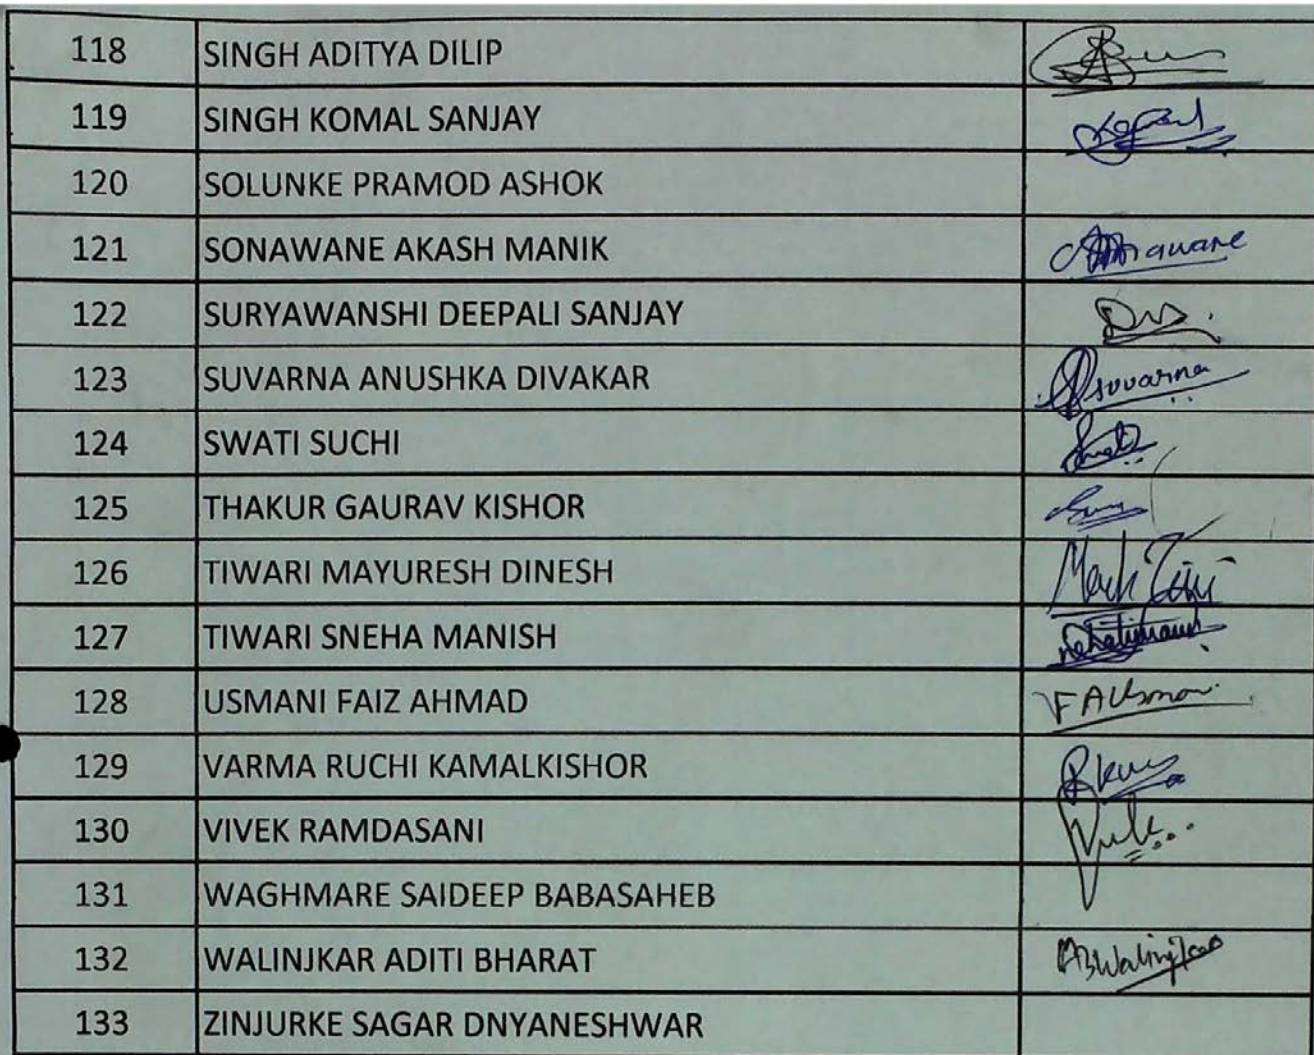 118 SINGH ADITYA DILIP
119 SINGH KOMAL SANJAY
120 SOLUNKE PRAMOD ASHOK
121 SONAWANE AKASH MANIK
122 SURYAWANSHI DEEPALI SANJAY
123 SUVARNA ANUSHKA DIVAKAR Suvarna
124 SWATI SUCHI
125 THAKUR GAURAV KISHOR
126 TIWARI MAYURESH DINESH
127 TIWARI SNEHA MANISH
128 USMANI FAIZ AHMAD
129 VARMA RUCHI KAMALKISHOR
130 VIVEK RAMDASANI
131 WAGHMARE SAIDEEP BABASAHEB
132 WALINJKAR ADITI BHARAT
133 ZINJURKE SAGAR DNYANESHWAR